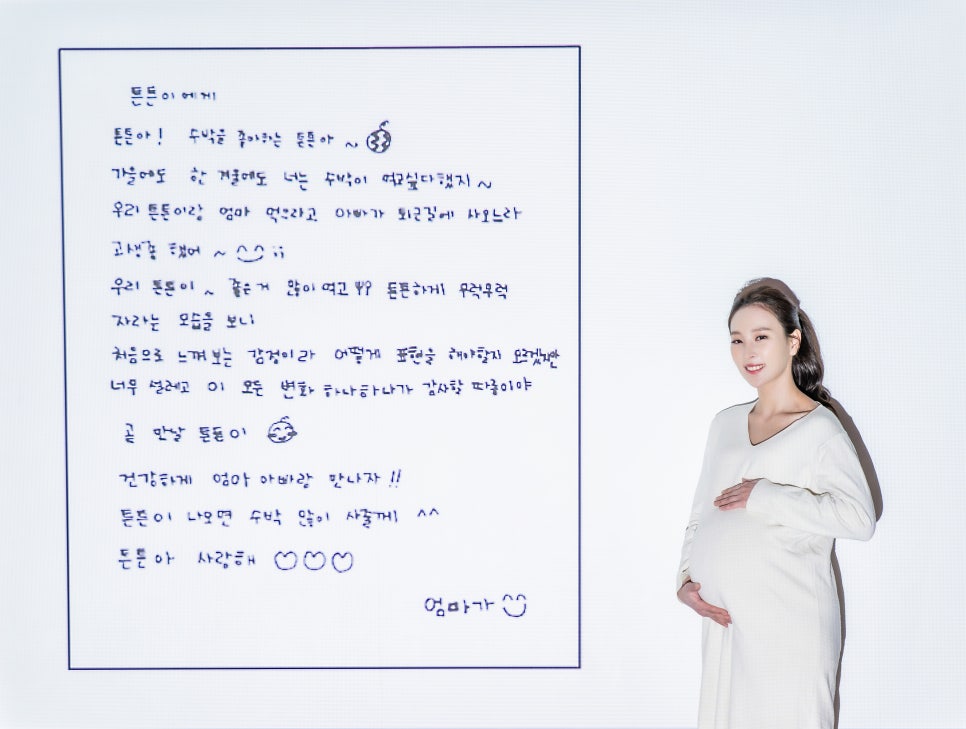 튼튼이에게
튼튼아! 수박을 좋아하는 튼튼아 ~
가을에도 한 겨울에도 너는 수박이 먹고싶다했지 ~
우리 튼튼이랑 엄마 먹으라고 아빠가 퇴근길에 사오느라
고생좀 했어 ~ ^^;;
우리 튼튼이 ~ 좋은거 많이 먹고 튼튼하게 무럭무럭
자라는 모습을 보니
처음으로 느껴보는 감정이라 어떻게 표현을 해야할지 모르겠지만
너무 설레고 이 모든 변화 하나하나가 감사할 따름이야
곧 만날 튼튼이
건강하게 엄마 아빠랑 만나자!!
튼튼이 나오면 수박 많이 사줄게 ^^
튼튼아 사랑해 ♡♡♡
엄마가